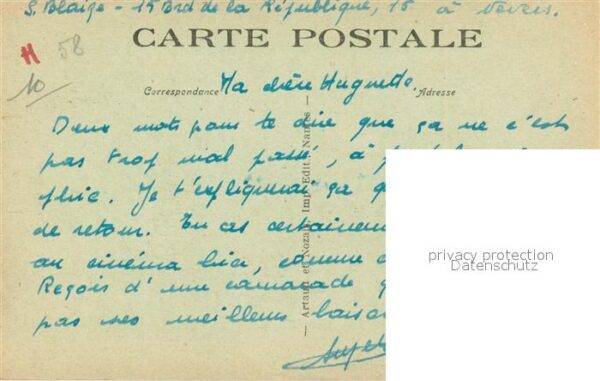 S. Blaize - 15 Brd de la République, 15 à Nevers.
CARTE POSTALE
H
58
10
Correspondance
Adresse
Ma chère Huguette
Deux mots pour te dire que ça ne s'est
pas trop mal passé, à
Je t'expliquerai ça
de retour. Tu as certainement
au cinéma hier, comme
Reçois d'une camarade
pas ses meilleurs baisers
— Artaud et Nozais, Imp.-Edit., Nantes —
privacy protection
Datenschutz